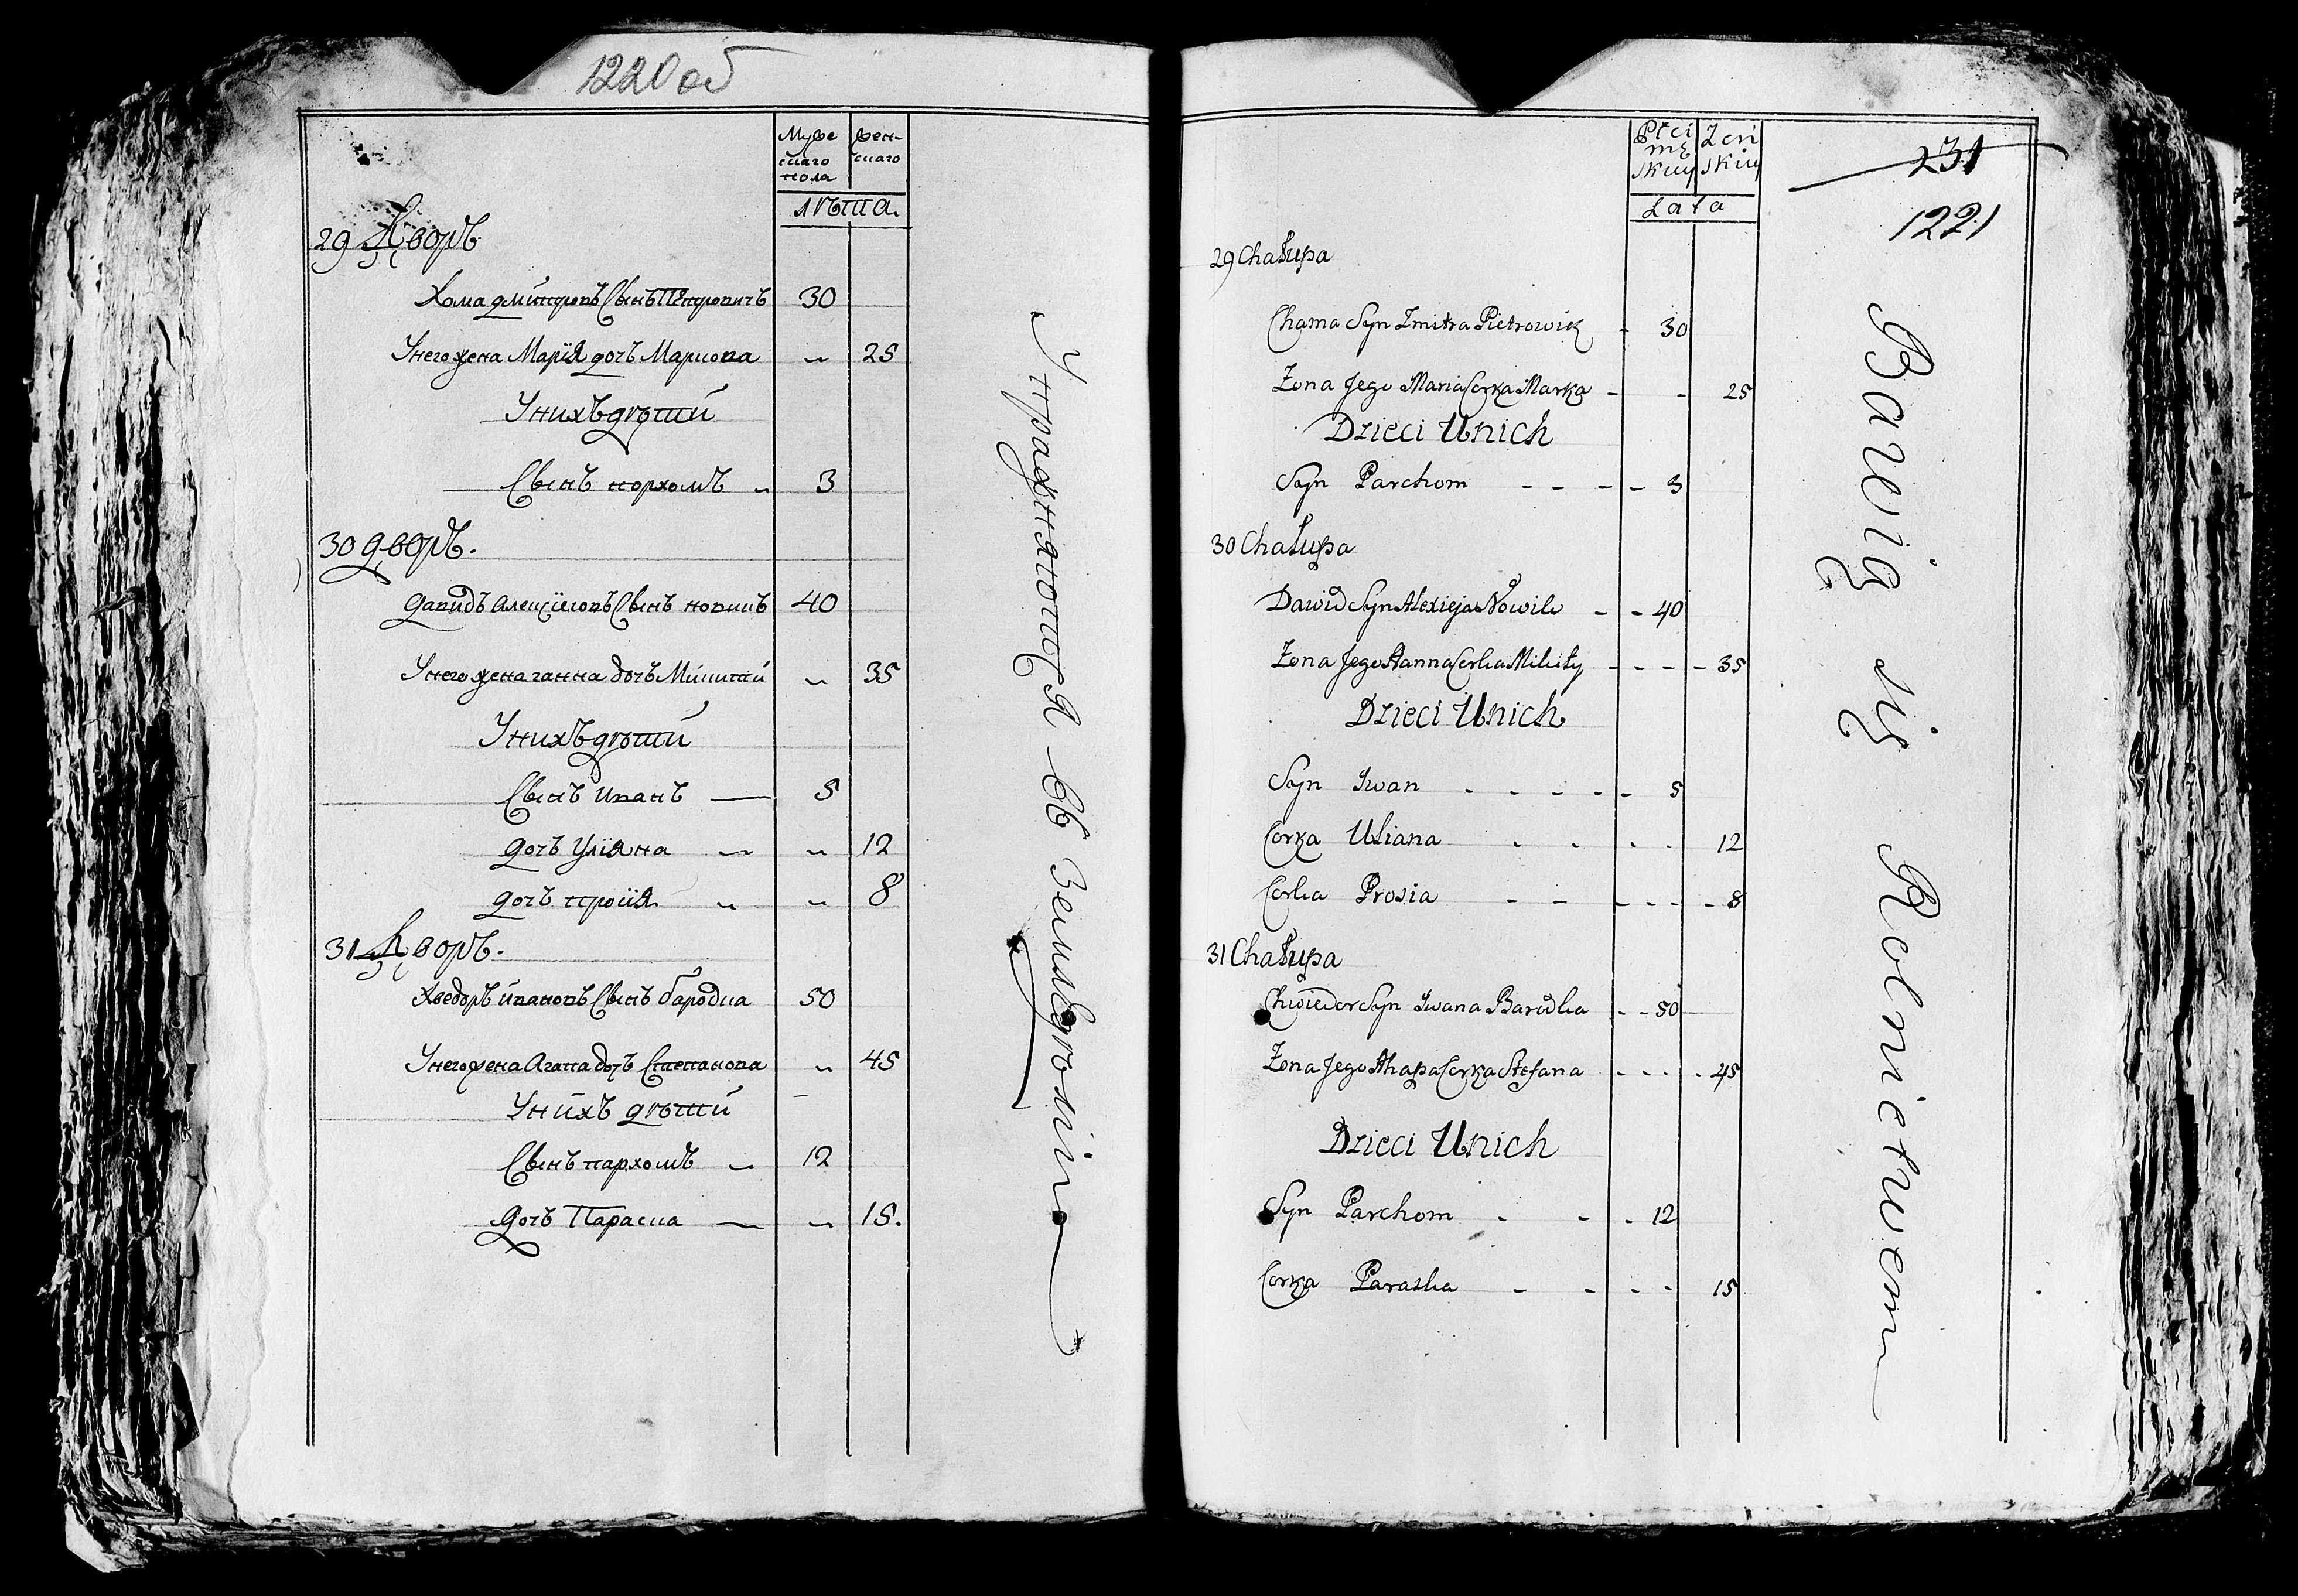 1220 об
Мужескаго пола
женскаго
лѣта.
29 Дворъ
Хома дмитровъ Сынъ Пѣтровичъ 30
Унего жена Марія дочъ Маркова „ 25
Унихъ дѣти
Сынъ пархомъ „ 3
30 дворъ.
давидъ алексіеговъ Сынъ новикъ 40
Унего жена ганна дочъ Микиты „ 35
Унихъ дѣти
Сынъ иванъ — 5
дочъ Уліяна „ „ 12
дочъ прося „ „ 8
31 Дворъ.
Хведоръ ивановъ Сынъ бародка 50
Унего жена Агапа дочъ Степанова „ 45
Унихъ дѣти
Сынъ пархомъ „ 12
дочъ Параска — „ 15.
Упражняются въ Земледѣліи
Płci mę skiey
Żeń skiey
Lata
231
1221
29 Chałupa
Chama Syn Zmitra Pietrowicz - 30
Zona Jego Maria Corka Marka - - 25
Dzieci Unich
Syn Parchom - - - - 3
30 Chałupa
Dawid Syn Alexieja Nowik - - 40
Zona Jego Hanna Corka Mikity - - - - 35
Dzieci Unich
Syn Iwan - - - - - 5
Corka Uliana - - - - 12
Corka Prosia - - - - - - 8
31 Chałupa
Chwiedor Syn Iwana Barodka - - 50
Zona Jego Ahapa Corka Stefana - - - - 45
Dzieci Unich
Syn Parchom - - - 12
Corka Paraska - - - - 15
Bawią się Rolnictwem